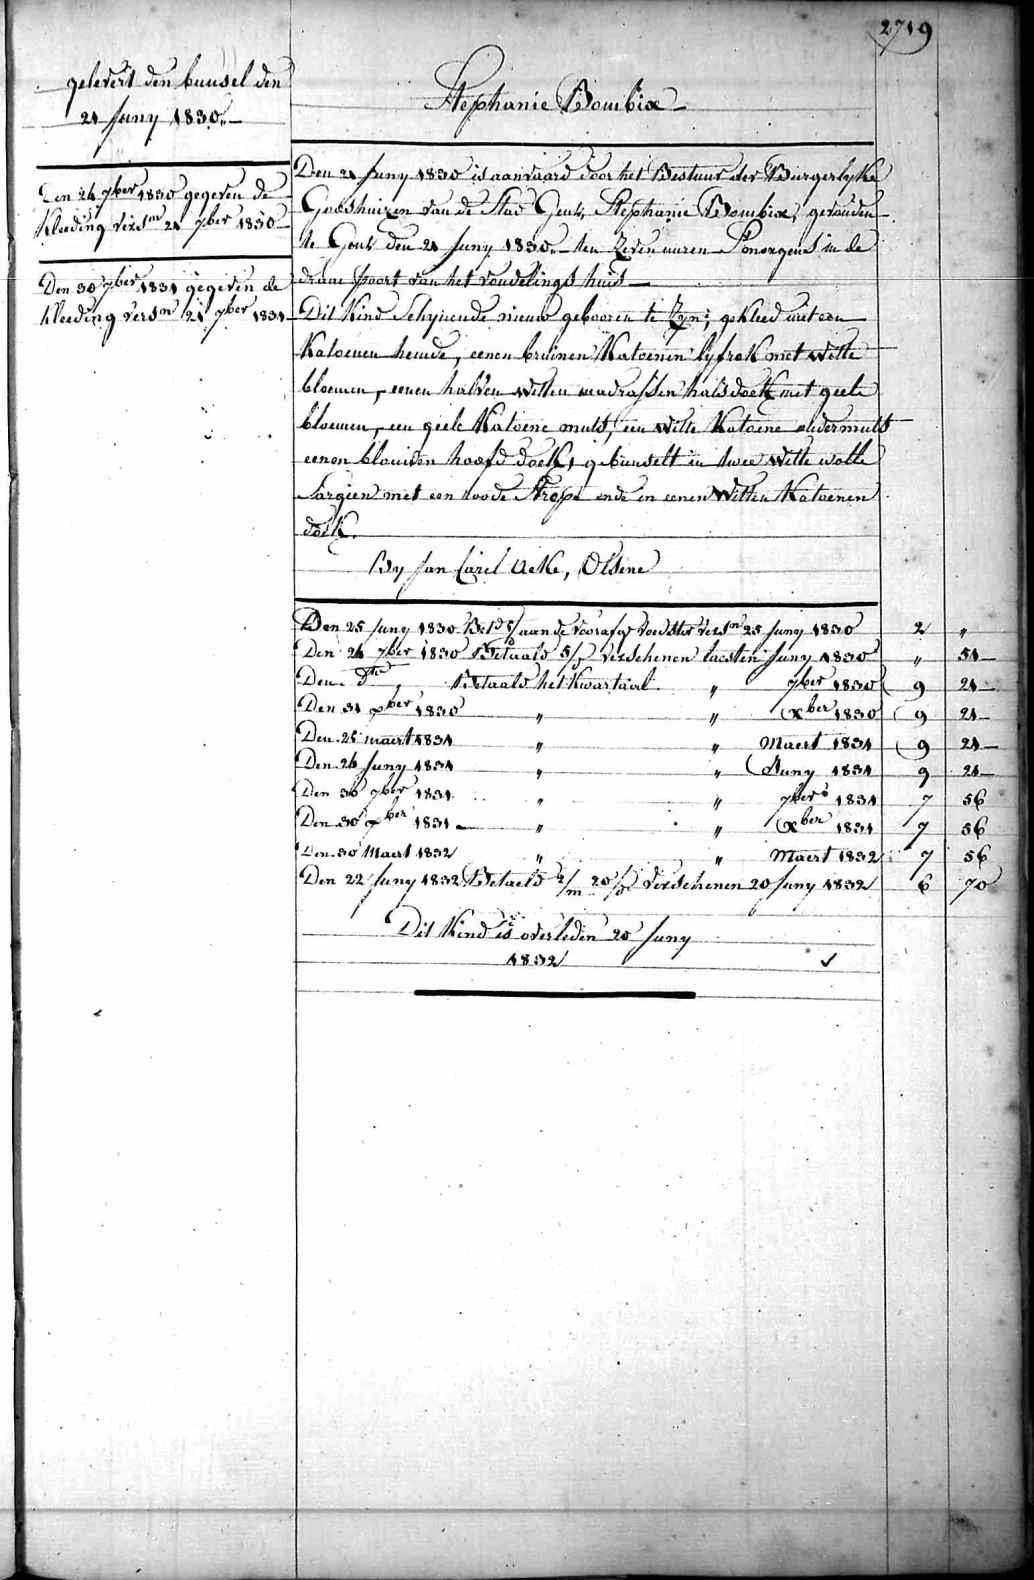 2719
gelevert den buusel den
21 Juny 1830.—
Den 26 7ber 1830 gegeven de
kleeding versn 21 7ber 1830
Den 30 7ber 1831 gegeven de
kleeding versn 21 7ber 1831
Stephanie Bombix
Den 21 Juny 1830 is aanvaard door het Bestuur der Burgerlyke
Godshuizen van de Stad Gent, Stephanie Bombix, gevonden
te Gent den 21 Juny 1830 — ten zeven uuren 's morgens in de
draai poort van het vondelings huis —
Dit Kind Schynende nieuw gebooren te Zyn; gekleed met een
Katoenen hemde, eenen bruinen Katoenen lyfrok met witte
bloemen, eenen halven witten madrassen halsdoek met geele
bloemen, een geele Katoene muts, een witte Katoene ondermuts
eenen blauwen hoofd doek, gebunselt in twee witte wolle
Sargien met een roode Strepe ende in eenen Witten Katoenen
doek.
By Jan Carel Acke, Olsene
Den 25 Juny 1830 Betd aan de voorafge voedster versn 25 Juny 1830 2 "
Den 26 7ber 1830 Betaald 5/ verschenen laesten Juny 1830 " 51
Den dto Betaald het Kwartaal " 7ber 1830 9 21
Den 31 xber 1830 " " xber 1830 9 21
Den 25 maert 1831 " " Maert 1831 9 21
Den 26 Juny 1831 " " Juny 1831 9 21
Den 30 7ber 1831 " " 7ber 1831 7 56
Den 30 xber 1831 " " xber 1831 7 56
Den 30 Maert 1832 " " Maert 1832 7 56
Den 22 Juny 1832 Betaald 2/m 20/ Verschenen 20 Juny 1832 6 70
Dit Kind is overleden 20 Juny
1832